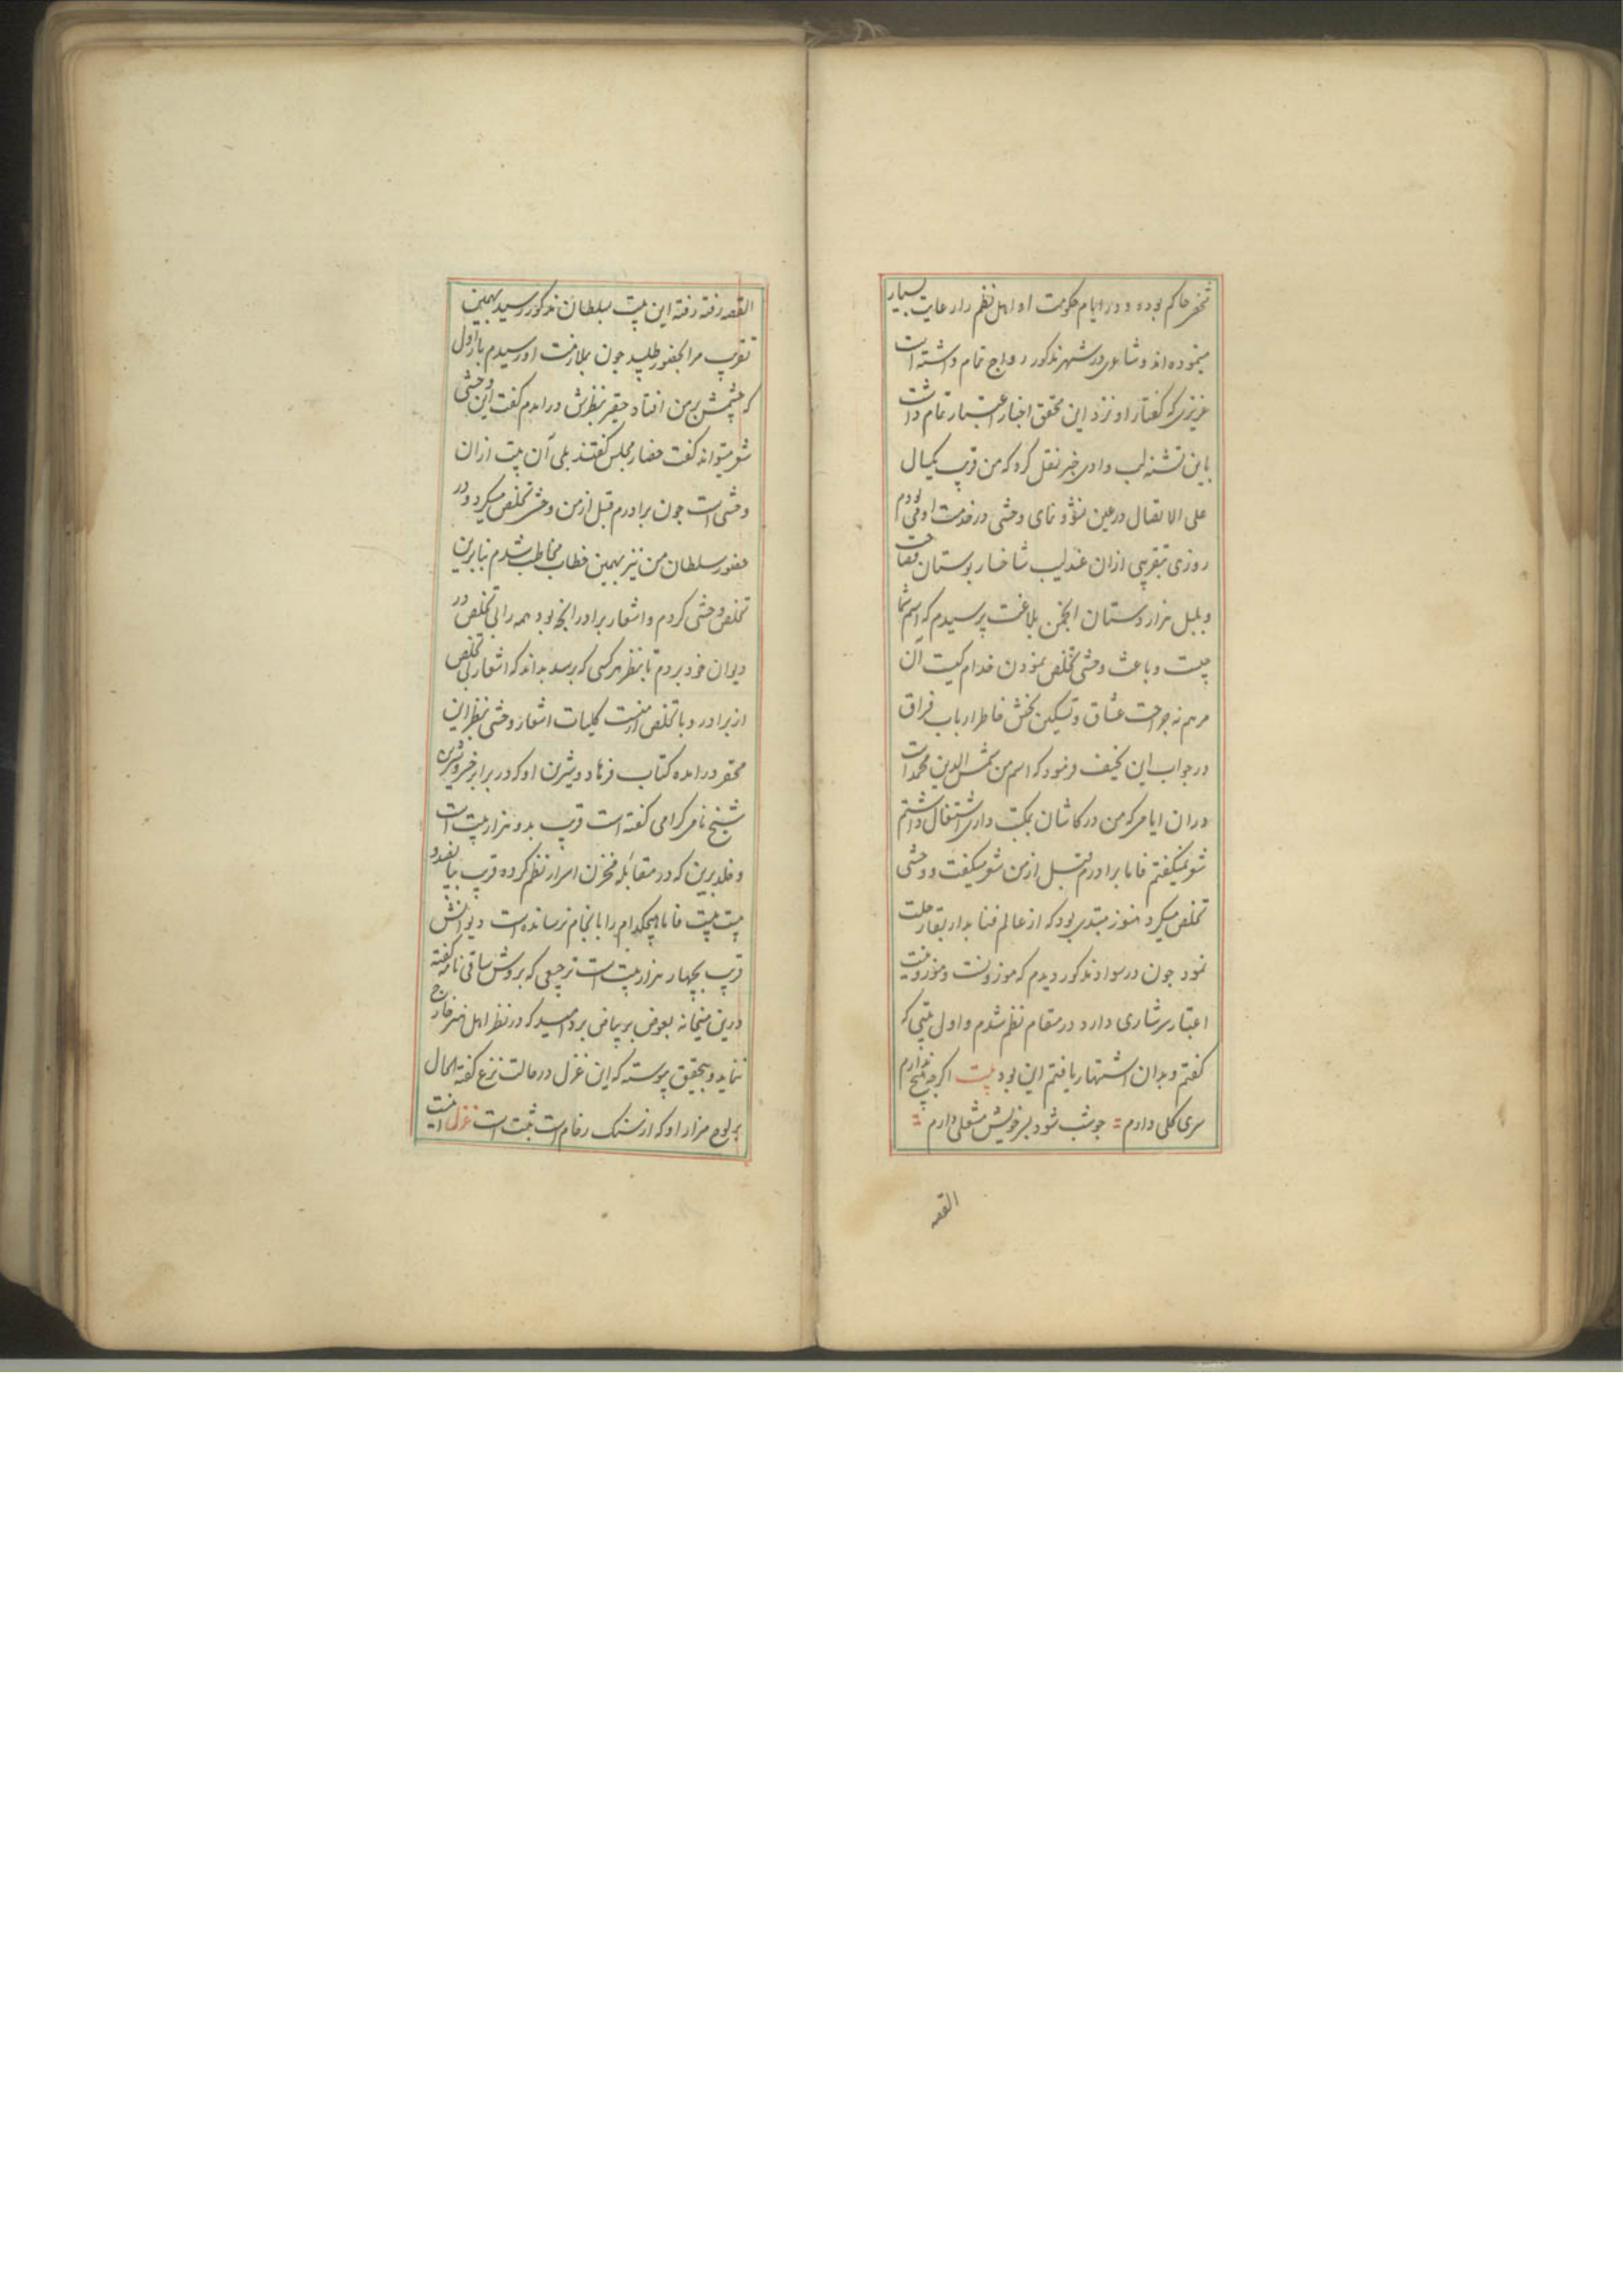 شخص حاکم بوده و در ایام حکومت او اهل نظم را رعایت بسیار
مینموده‌اند و شاعری در شهر مذکور رواج تمام داشته است
عزیزی که گفتار او نزد این محقق اخبار اعتبار تمام داشت
باین تشنه لب وادی خبر نقل کرد که من قریب یکسال
علی الاتصال در عین نشو و نمای وحشی در خدمت او می بودم
روزی بتقریبی ازان عندلیب شاخسار بوستان فصاحت
و بلبل هزار دستان انجمن بلاغت پرسیدم که اسم شما
چیست و باعث وحشی تخلص نمودن خدام کیست آن
مرهم نه جراحت عشاق و تسکین بخش خاطر ارباب فراق
در جواب این نحیف فرمود که اسم من شمس الدین محمد است
دران ایامی که من در کاشان بمکتب داری اشتغال داشتم
شعر نمیگفتم فاما برادرم قبل از من شعر میگفت و وحشی
تخلص میکرد هنوز مبتدی بود که از عالم فنا بدار بقا رحلت
نمود چون در سواد مذکور دیدم که موزونست و موزونیت
اعتبار سرشاری دارد در مقام نظم شدم و اول بیتی که
گفتم و بدان اشتهار یافتم این بود بیت اگرچه هیچ ندارم
سری کلی دارم چو شب شود بسر خویش مشعلی دارم
القصه
القصه رفته رفته این بیت بسلطان مذکور رسید بهمین
تقریب مرا بحضور طلبید چون بملازمت او رسیدم بار اول
که چشمش بر من افتاد حقیر بنظرش درامدم گفت این وحشی
شعر میتواند گفت حضار مجلس گفتند بلی آن بیت ازان
وحشی است چون برادرم قبل از من وحشی تخلص میکرد و در
حضور سلطان من نیز بهمین خطاب مخاطب شدم بنابرین
تخلص وحشی کردم و اشعار برادر انچه بود همه را بی تخلص در
دیوان خود بردم تا بنظر هر کسی که برسد بداند که اشعار بی تخلص
از برادر و با تخلص از منست کلیات اشعار وحشی بنظر این
محقر درامده کتاب فرهاد و شیرین او که در برابر خسرو شیرین
شیخ نامی گرامی گفته است قریب بدو هزار بیت است
و خلد برین که در مقابله مخزن اسرار نظم کرده قریب بپانصد و
بیست بیت فاما هیچکدام را باانجام نرسانده است دیوانش
قریب بچهار هزار بیت است ترجیعی که بروش ساقی نامه گفته
درین میخانه بعوض بر بیاض برد امید که در نظر اهل هنر خارج
ننماید و بتحقیق پیوسته که این غزل در حالت نزع گفته الحال
بر لوح مزار او که از سنک رخام است ثبت است غزل اینست